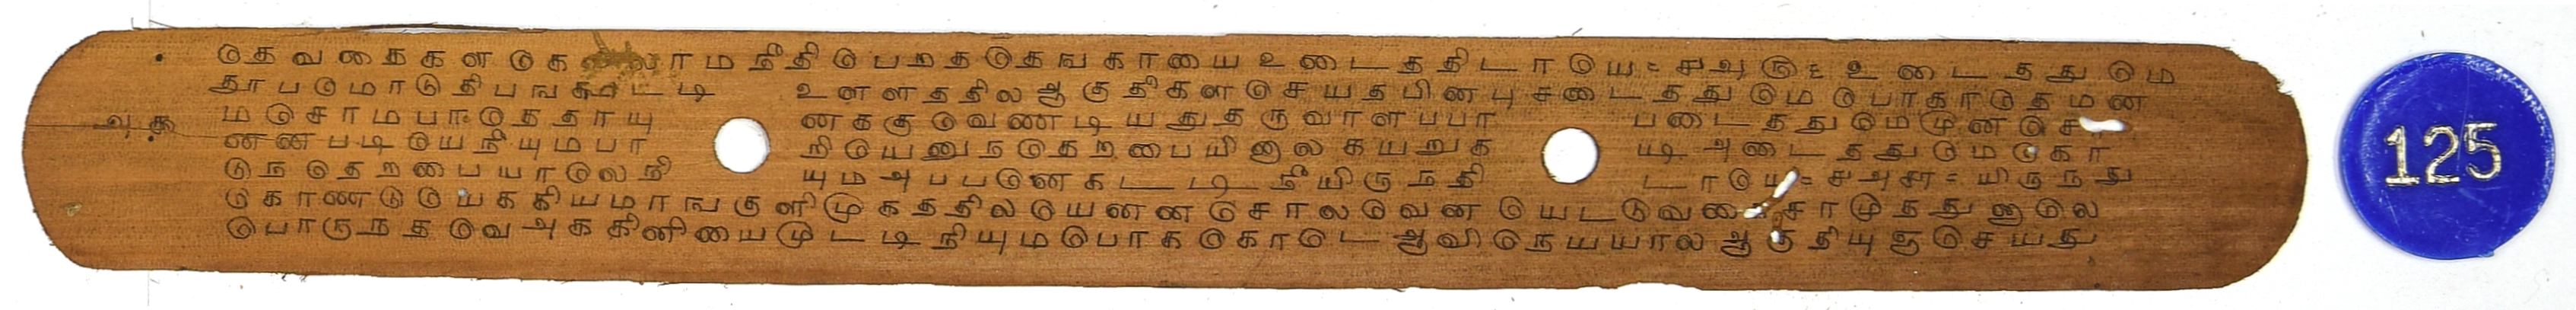 தெவதைகளுகெலலாமநீதிபெறததெஙகாயை உடைததிடாயெ = ௪௮௫ = உடைததுமெ
தூபமொடுதிபஙகாடடி உளளததிலஆகுதிகளசெயதபினபு சடைததுமெபொகாதெமன
மசொமபாதெதாயு ணககுவெணடியதுதருவாளபபா படைததுமெமுனசெ
னனபடியெநீயுமபா நியெனுநதெறபையினுலகயறுத யடிஅடைததுமெகொ
டுநதெறபையாலெநி யுமஅபபனெகடடிநீயிருநதி டாயெ = ௪௮௬ = யிருநது
கொணடுயெககியமாஙகுளிமுகததிலயெனனசொலவென யெடடுவகைசாமுதது னுலெ
பொருநதவெஅககினியைமுடடிநியுமபொகடகொடெஆவிநெயயாலஆகுதியுஞசெயது
௮௧
125